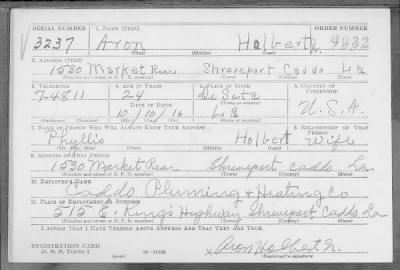 SERIAL NUMBER 1. NAME (Print) ORDER NUMBER
3237 Aron Holbert Jr. 4832
(First) (Middle) (Last)
2. ADDRESS (Print)
1530 Market Rear Shreveport Caddo La
(Number and street or R. F. D. number) (Town) (County) (State)
3. TELEPHONE 4. AGE IN YEARS 5. PLACE OF BIRTH 6. COUNTRY OF CITIZENSHIP
7-4811 24 De Soto
DATE OF BIRTH (Town or county)
10/10/16 La U.S.A.
(Exchange) (Number) (Mo.) (Day) (Yr.) (State or country)
7. NAME OF PERSON WHO WILL ALWAYS KNOW YOUR ADDRESS 8. RELATIONSHIP OF THAT PERSON
Phyllis Holbert Wife
(Mr., Mrs., Miss) (First) (Middle) (Last)
9. ADDRESS OF THAT PERSON
1530 Market Rear Shreveport Caddo La
(Number and street or R. F. D. number) (Town) (County) (State)
10. EMPLOYER'S NAME
Caddo Pluming & Heating Co.
11. PLACE OF EMPLOYMENT OR BUSINESS
515 E. Kings Highway Shreveport Caddo La
(Number and street or R. F. D. number) (Town) (County) (State)
I AFFIRM THAT I HAVE VERIFIED ABOVE ANSWERS AND THAT THEY ARE TRUE.
REGISTRATION CARD
D. S. S. FORM 1 Aron Holbert Jr.
(Registrant's signature)